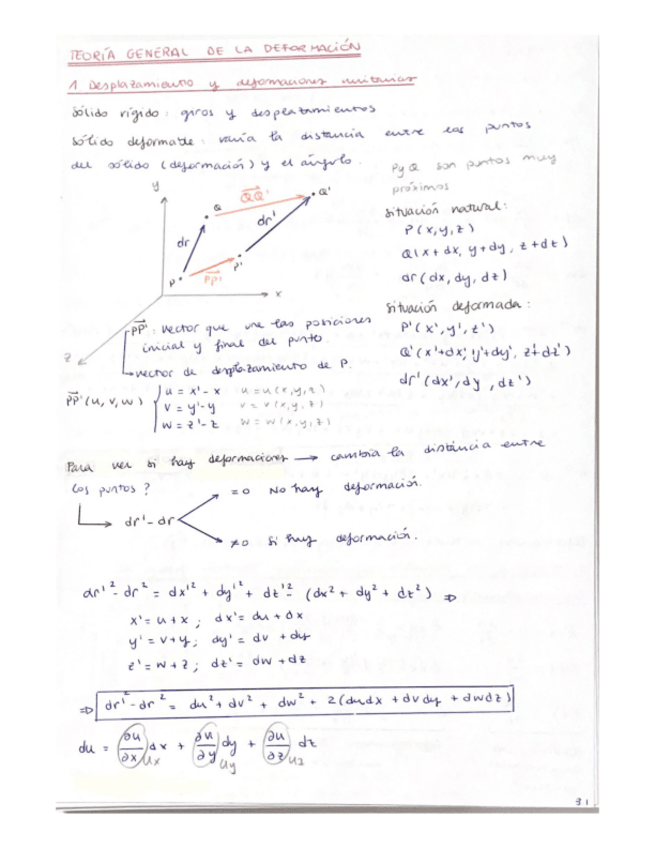 TEORÍA GENERAL DE LA DEFORMACIÓN
1. Desplazamiento y deformaciones unitarias
Sólido rígido: giros y desplazamientos
Sólido deformable: varía la distancia entre los puntos
del sólido (deformación) y el ángulo.
P y Q son puntos muy
próximos
y
Q
QQ'
Q'
dr
dr'
P
PP'
P'
x
z
Situación natural:
P(x,y,z)
Q(x+dx, y+dy, z+dz)
dr(dx, dy, dz)
Situación deformada:
P'(x',y',z')
Q'(x'+dx', y'+dy', z'+dz')
dr'(dx', dy, dz')
PP': vector que une las posiciones
inicial y final del punto
vector de desplazamiento de P.
PP'(u,v,w) u = x'-x u=u(x,y,z)
v = y'-y v=v(x,y,z)
w = z'-z w=w(x,y,z)
Para ver si hay deformaciones → cambia la distancia entre
los puntos?
dr'-dr
=0 No hay deformación.
≠0 Si hay deformación.
dr'²-dr² = dx'² + dy'² + dz'² - (dx² + dy² + dz²) ⇒
x' = u+x; dx' = du+dx
y' = v+y; dy' = dv+dy
z' = w+z; dz' = dw+dz
⇒ dr'²-dr² = du² + dv² + dw² + 2(dudx + dvdy + dwdz)
du = ∂u/∂x dx + ∂u/∂y dy + ∂u/∂z dz
ux uy uz
31